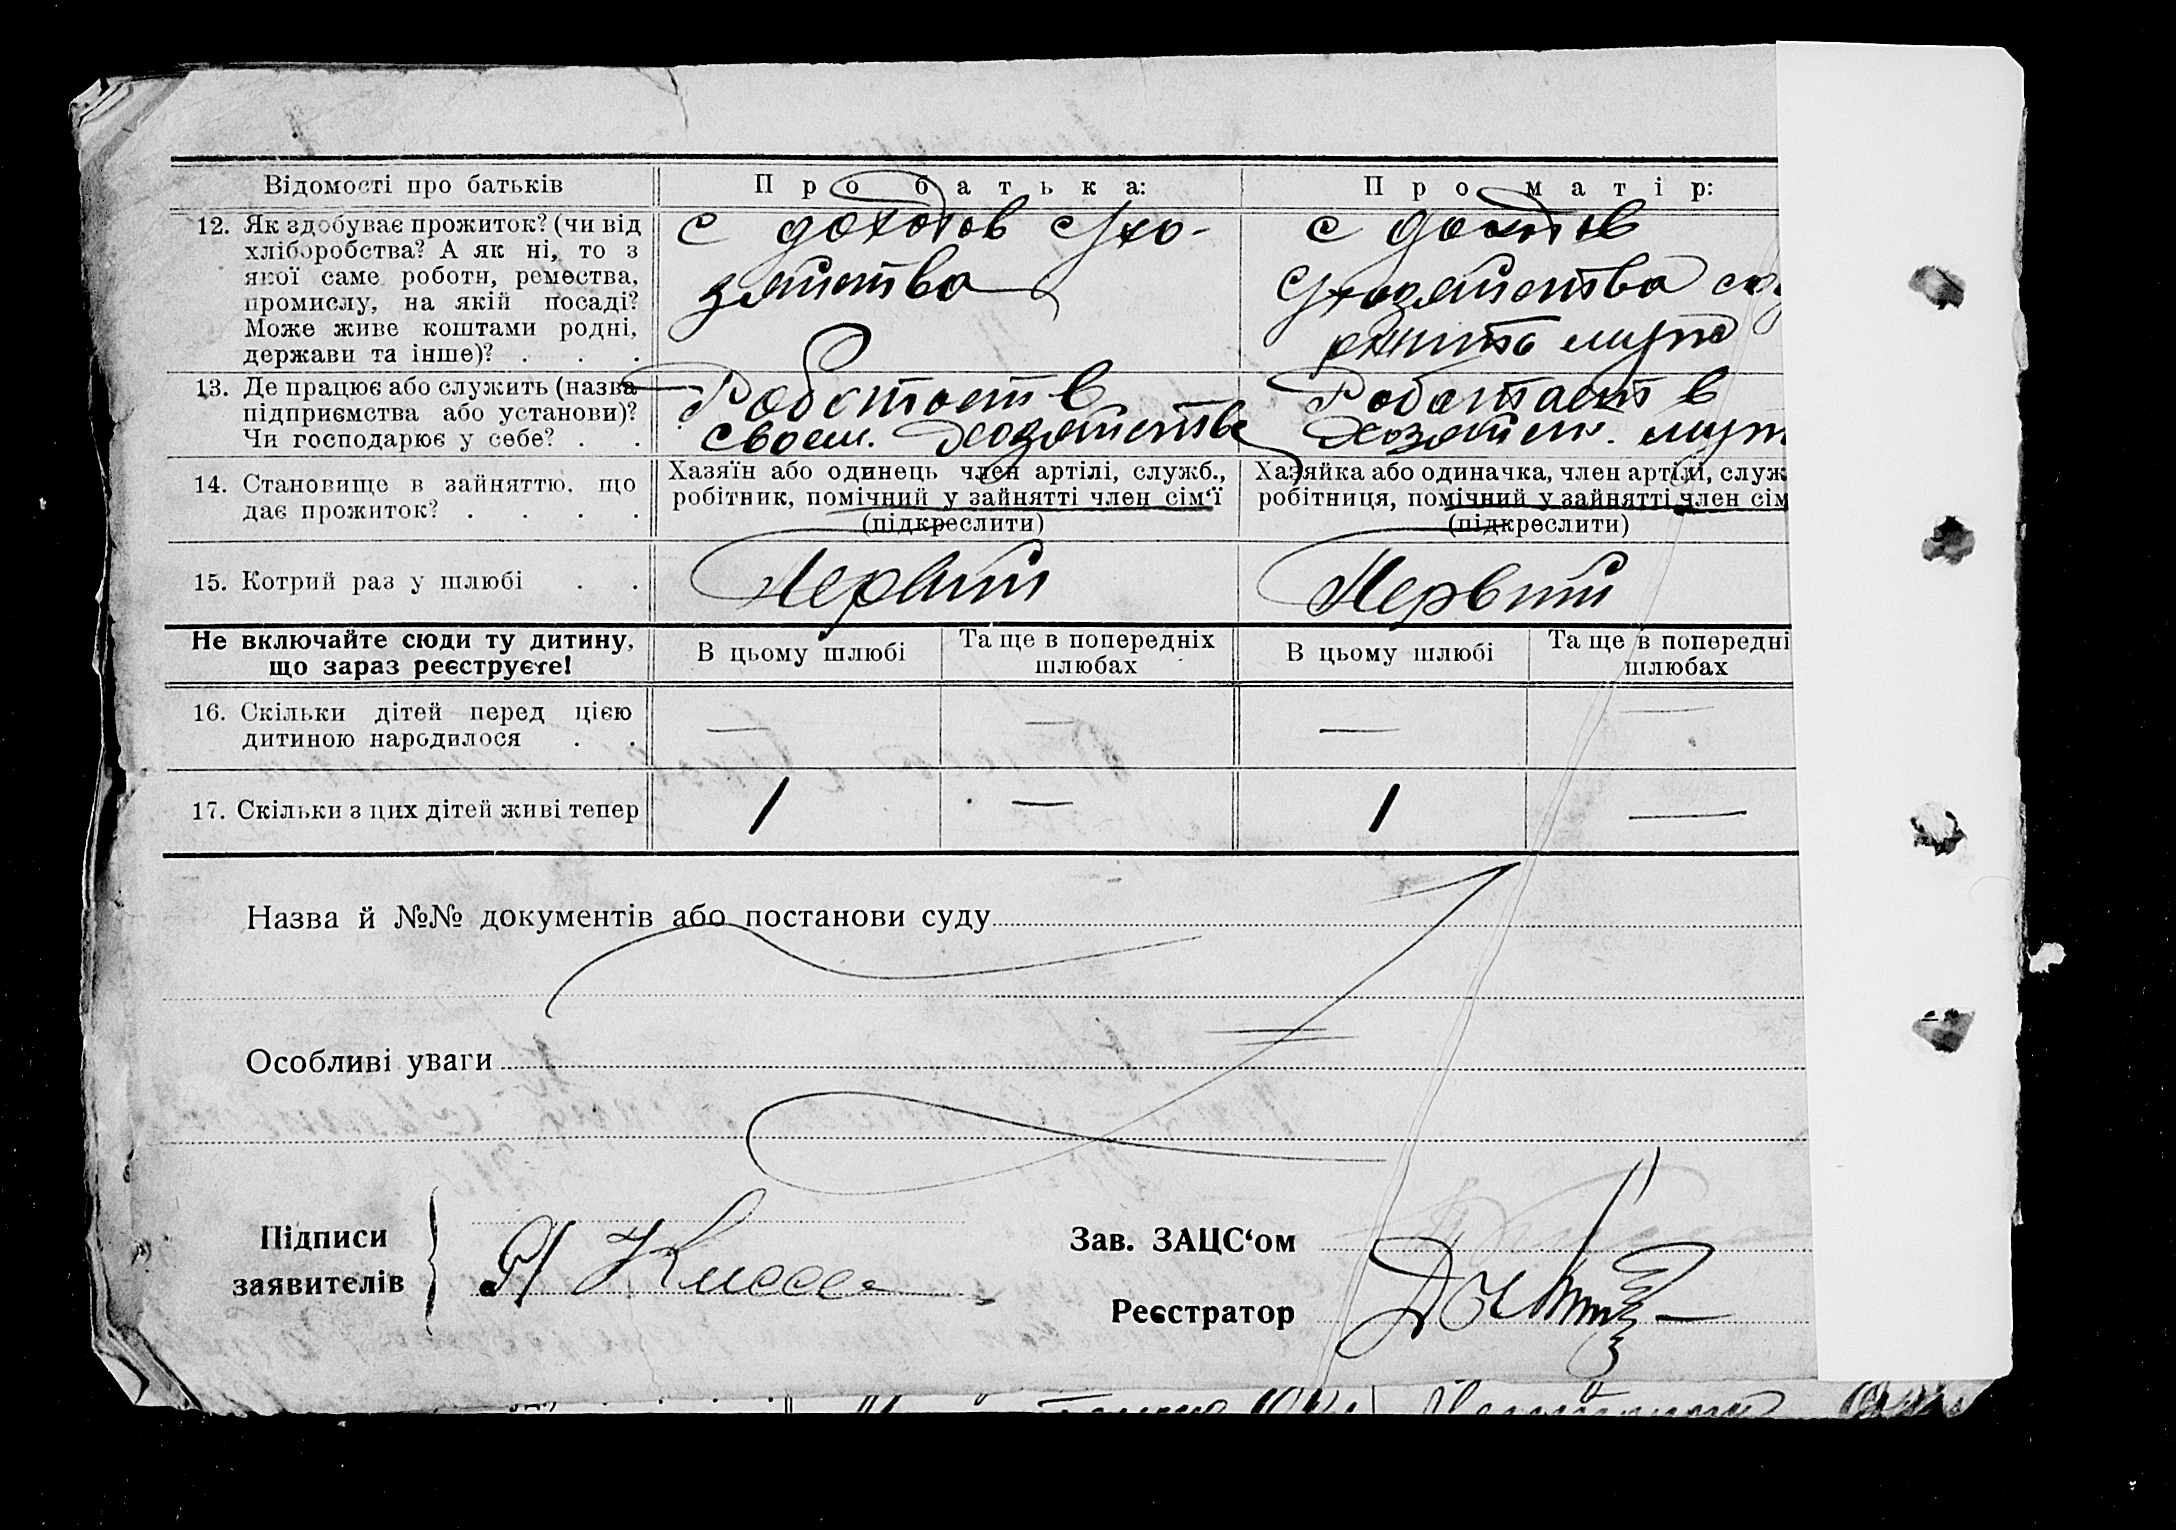 Відомості про батьків
Про батька:
Про матір:
12. Як здобуває прожиток? (чи від
хліборобства? А як ні, то з
якої саме роботи, ремества,
промислу, на якій посаді?
Може живе коштами родні,
держави та інше)? . . .
с доходов с/хо-
зяйства
с доходов
с/хозяйства
мужа
13. Де працює або служить (назва
підприємства або установи)?
Чи господарює у себе? . .
Работает в
своем. хозяйстве
Работает в
хозяйств. муж
14. Становище в зайняттю, що
дає прожиток? . . . .
Хазяїн або одинець член артілі, служб.,
робітник, помічний у зайнятті член сім‘ї
(підкреслити)
Хазяйка або одиначка, член артілі, служ
робітниця, помічний у зайнятті член сім
(підкреслити)
15. Котрий раз у шлюбі . .
Первий
Первий
Не включайте сюди ту дитину,
що зараз реєструєте!
В цьому шлюбі
Та ще в попередніх
шлюбах
В цьому шлюбі
Та ще в попередні
шлюбах
16. Скільки дітей перед цією
дитиною народилося . .
— — — —
17. Скільки з цих дітей живі тепер
1 — 1 —
Назва й №№ документів або постанови суду
Особливі уваги
Підписи
заявителів
Зав. ЗАЦС‘ом
Реєстратор